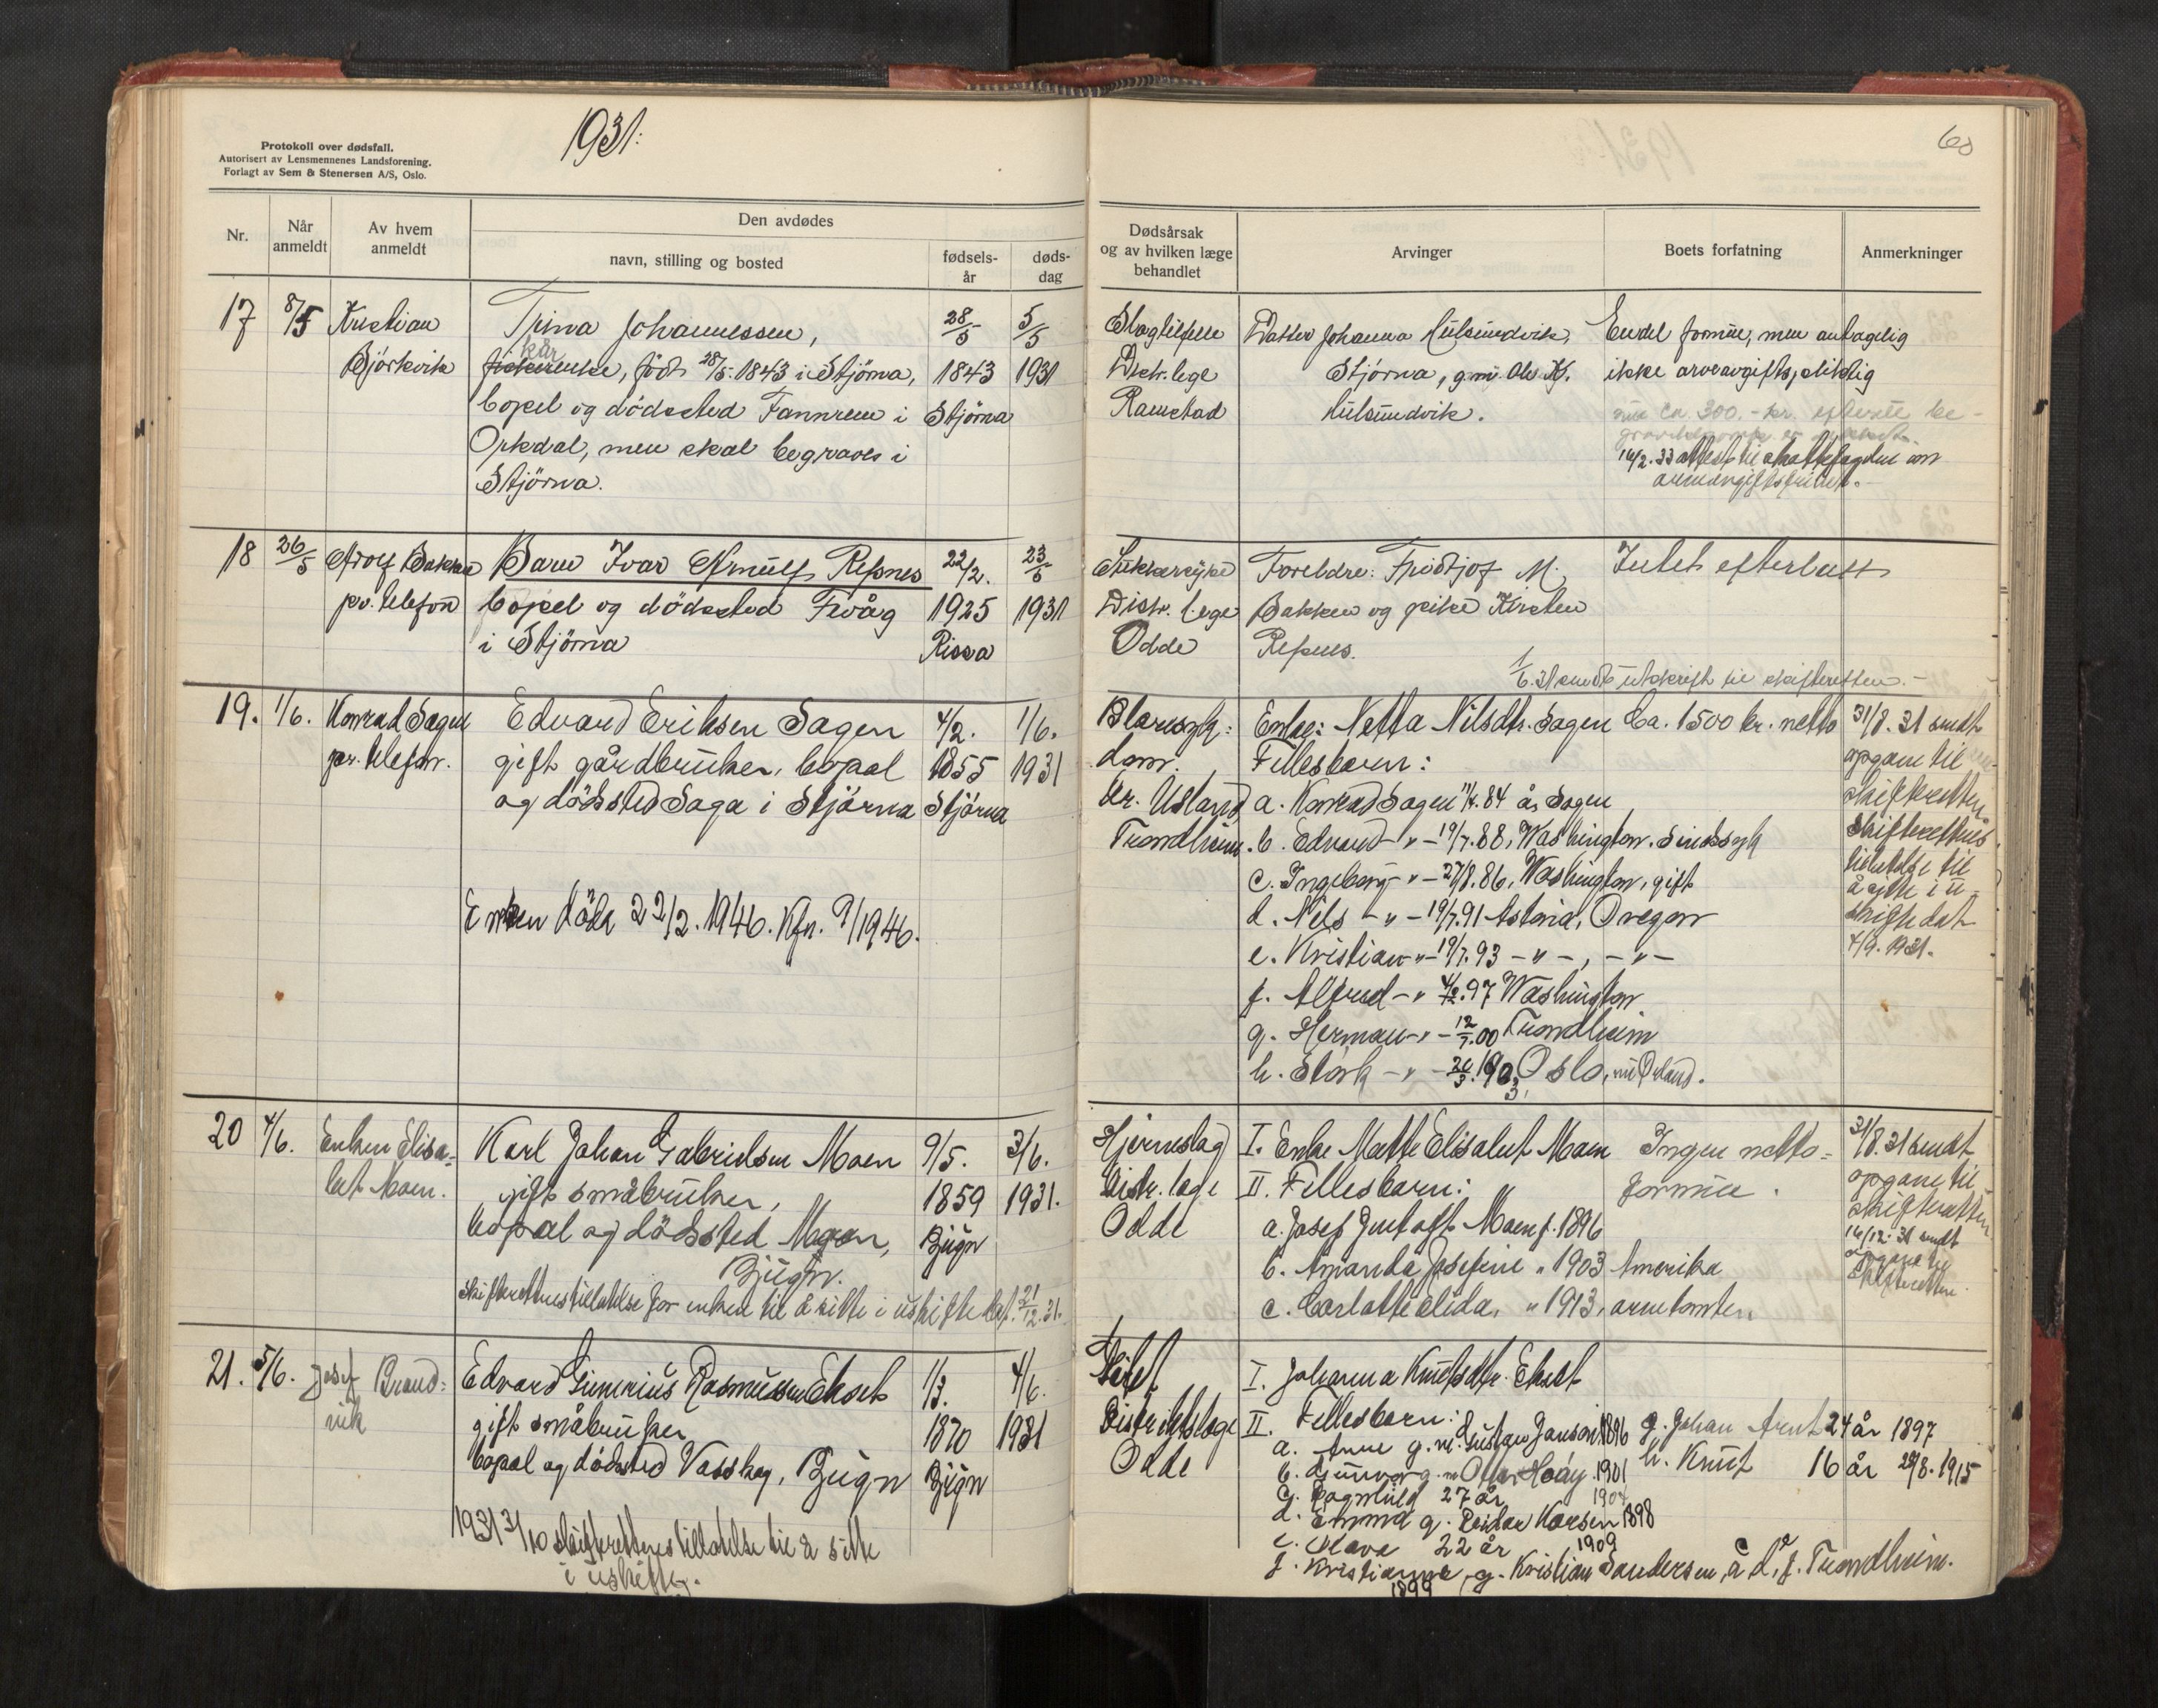 1931.
Protokoll over dødsfall.
Autorisert av Lensmennenes Landsforening.
Forlagt av Sem & Stenersen A/S, Oslo.
60
Nr.
Når anmeldt
Av hvem anmeldt
Den avdødes
navn, stilling og bosted
fødsels-år
døds-dag
Dødsårsak og av hvilken læge behandlet
Arvinger
Boets forfatning
Anmerkninger
17
8/5
Kristian
Bjørkvik
Trina Johannessen,
kår
enke, født 28/5 1843 i Stjørna,
bopel og dødssted Fannrem i
Orkdal, men skal begraves i
Stjørna.
28/5
1843
Stjørna
5/5
1931
Slagtilfelle
Distr. lege
Ramstad
Datter Johanna Hulsundvik,
Stjørna, g.m. Ole K.
Hulsundvik.
Endel formue, men antagelig
ikke arveavgiftspliktig
ca. 300.- kr. efterat be-
14/2.33 attest til skattefogden om
arveavgiftsfrihet.-
18
26/5
Arolf Bakken
pr. telefon
Barn Ivar Arnulf Refsnes
bopel og dødssted Fevåg
i Stjørna
22/2.
1925
Rissa
23/5
1931
Sukkersyke
Distr. lege
Odde
Foreldre: Fridtjof M.
Bakken og pike Kirsten
Refsnes.
Intet efterlatt
1/6.31 sendt utskrift til skifteretten.-
19.
1/6.
Konrad Sagen
pr. telefon.
Edvard Eriksen Sagen
gift gårdbruker, bopal
og dødssted Saga i Stjørna
4/2.
1855
Stjørna
1/6.
1931
Enken død 22/2.1946. Kfr. 9/1946.
Blæresyk:
dom.
Dr. Utland
Trondheim.
Enke: Netta Nilsdtr. Sagen
Fellesbarn:
a. Konrad Sagen 11/4.84 år Sagen
b. Edvard -"- 19/7.88, Washington. Sindssyk
c. Ingeborg -"- 27/8.86, Washington, gift
d. Nils -"- 19/7.91 Astoria, Oregon
e. Kristian -"- 19/7.93 -"-, -"-
f. Alfred -"- 4/12.97 Washington
g. Herman -"- 12/7.00 Trondheim
h. Stork -"- 20/3.1903, Oslo, nu Ørland.
Ca. 1500 kr. netto
31/8.31 sendt
opgave til
skifteretten
Skifterettens
tilladelse til
å sitte i u-
skifte dat.
4/9.1931.
20
4/6.
Enken Elisa-
bet Moen.
Karl Johan Gabrielsen Moen
gift småbruker,
bopal og dødssted Moen,
Bjugn.
Skifterettens tilladelse for enken til å sitte i uskifte dat. 21/12.31.
9/5.
1859
Bjugn
3/6.
1931.
Hjerneslag
Distr. lege
Odde
I. Enke Matte Elisabet Moen
II. Fellesbarn:
a. Josef Gustaft Moen f. 1896
b. Amanda Josefine " 1903 Amerika
c. Carlotte Elida, " 1913, arnetomten
Ingen netto-
formue.
31/8.31 sendt
opgave til
skifteretten
14/12.31 sendt
opgave til
skifteretten.
21.
5/6.
Josef Brand-
vik
Edvard Sumerius Rasmussen Ekset
gift småbruker
bopal og dødssted Vasskag, Bjugn
1931 31/10 skifterettens tilladelse til å sitte
i uskifte.
1/3.
1870
Bjugn
4/6.
1931
Distriktslege
Odde
I. Johanna Knutsdtr. Ekset
II. Fellesbarn:
a. Anne g. m. Gustav Janson 1896
b. Gunvor g. m. Olav Hoøy 1901
c. Ragnhild 27 år 1904
d. Emma g. Reidar Karsen 1898
e. Olava 22 år 1909
f. Kristianne, g. Kristian Sandersen, a, c, d, f. Trondheim.
1899
g. Johan Arnt 24 år 1897
h. Knut 16 år 28/8.1915